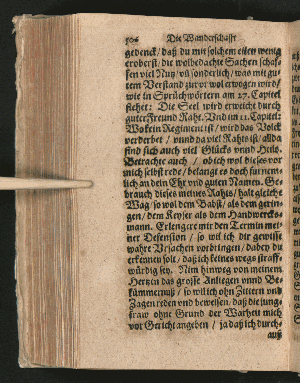 504 Die Wanderschafft
gedenck / daß du mit solchem eilen wenig
eroberst / die wolbedachte Sachen schaf-
fen viel Nutz / vñ sonderlich / was mit gu-
tem Verstand zuvor wol erwogen wird /
wie in Sprüchwörtern am 27. Capitel
stehet: Die Seel wird erweicht durch
guter Freund Raht. Vnd im 11. Capitel:
Wo kein Regiment ist / wird das Volck
verderbet / vnnd da viel Rahts ist / allda
find sich auch viel Glücks vnnd Heils.
Betrachte auch / ob ich wol dieses vor
mich selbst rede / belanget es doch fürnem-
lich an dein Ehr vnd guten Namen. Ge-
brauch dieses meines Rahts / hat gleiche
Wag / so wol dem Babst / als dem gerin-
gen / dem Keyser als dem Handwercks-
mann. Erlengere mir den Termin mei-
ner Defension / so wil ich dir gewisse
wahre Vrsachen vorbringen / dabey du
erkennen solt / daß ich keines wegs straff-
würdig sey. Nim hinweg von meinem
Hertzen das grosse Anliegen vnnd Be-
kümmernuß / so wil ich ohn Zittern vnd
Zagen reden vnd beweisen / daß die jung-
fraw ohne Grund der Warheit mich
vor Gericht angeben / ja daß ich durch-
auß